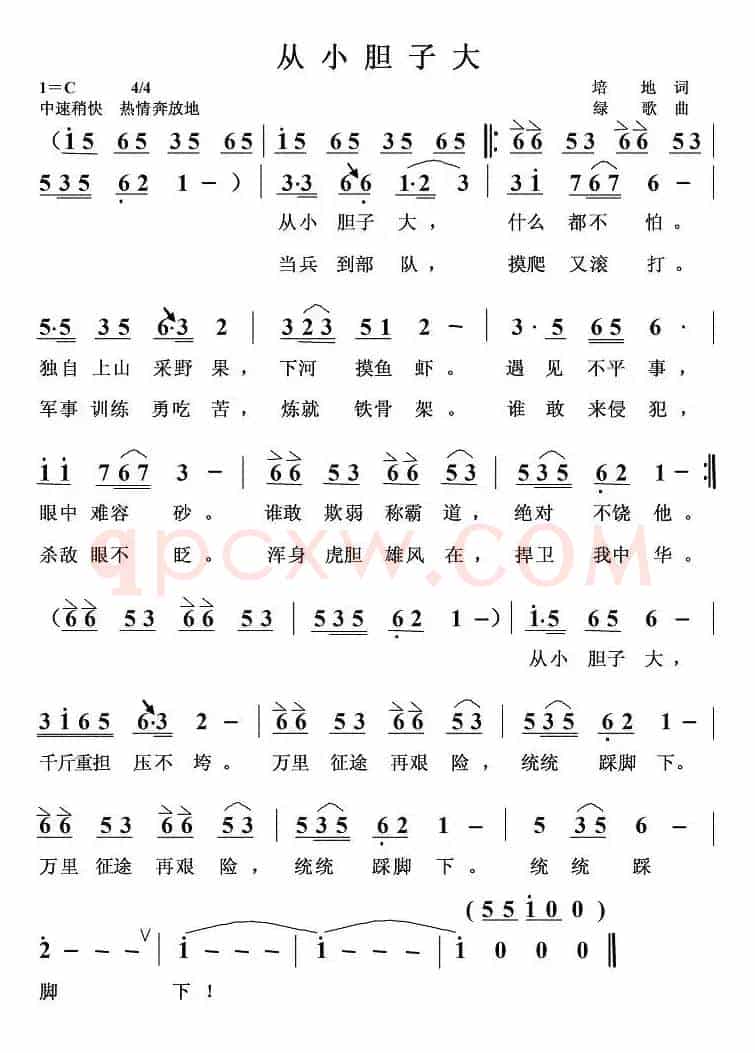 从小胆子大
1=C 4/4 培地词
中速稍快 热情奔放地 绿歌曲
(i5 65 35 65 | i5 65 35 65 |: 66 53 66 53
535 62 1 - ) | 3·3 6·6 1·2 3 | 3i 767 6 - |
从小 胆子 大， 什么 都不 怕。
当兵 到部 队， 摸爬 又滚 打。
5·5 35 6·3 2 | 323 51 2 - | 3· 5 65 6 |
独自 上山 采野 果， 下河 摸鱼 虾。 遇见 不平 事，
军事 训练 勇吃 苦， 炼就 铁骨 架。 谁敢 来侵 犯，
i i 767 3 - | 66 53 66 53 | 535 62 1 - :|
眼中 难容 砂。 谁敢 欺弱 称霸 道， 绝对 不饶 他。
杀敌 眼不 眨。 浑身 虎胆 雄风 在， 捍卫 我中 华。
qpcxw.COM
(66 53 66 53 | 535 62 1 - ) | i·5 65 6 - |
从小 胆子 大，
3i65 6·3 2 - | 66 53 66 53 | 535 62 1 - |
千斤重担 压不 垮。 万里 征途 再艰 险， 统统 踩脚 下。
66 53 66 53 | 535 62 1 - | 5 35 6 - |
万里 征途 再艰 险， 统统 踩脚 下。 统统 踩
(55i0 0)
2 - - - ∨ | i - - - | i - - - | i 0 0 0 ‖
脚 下！